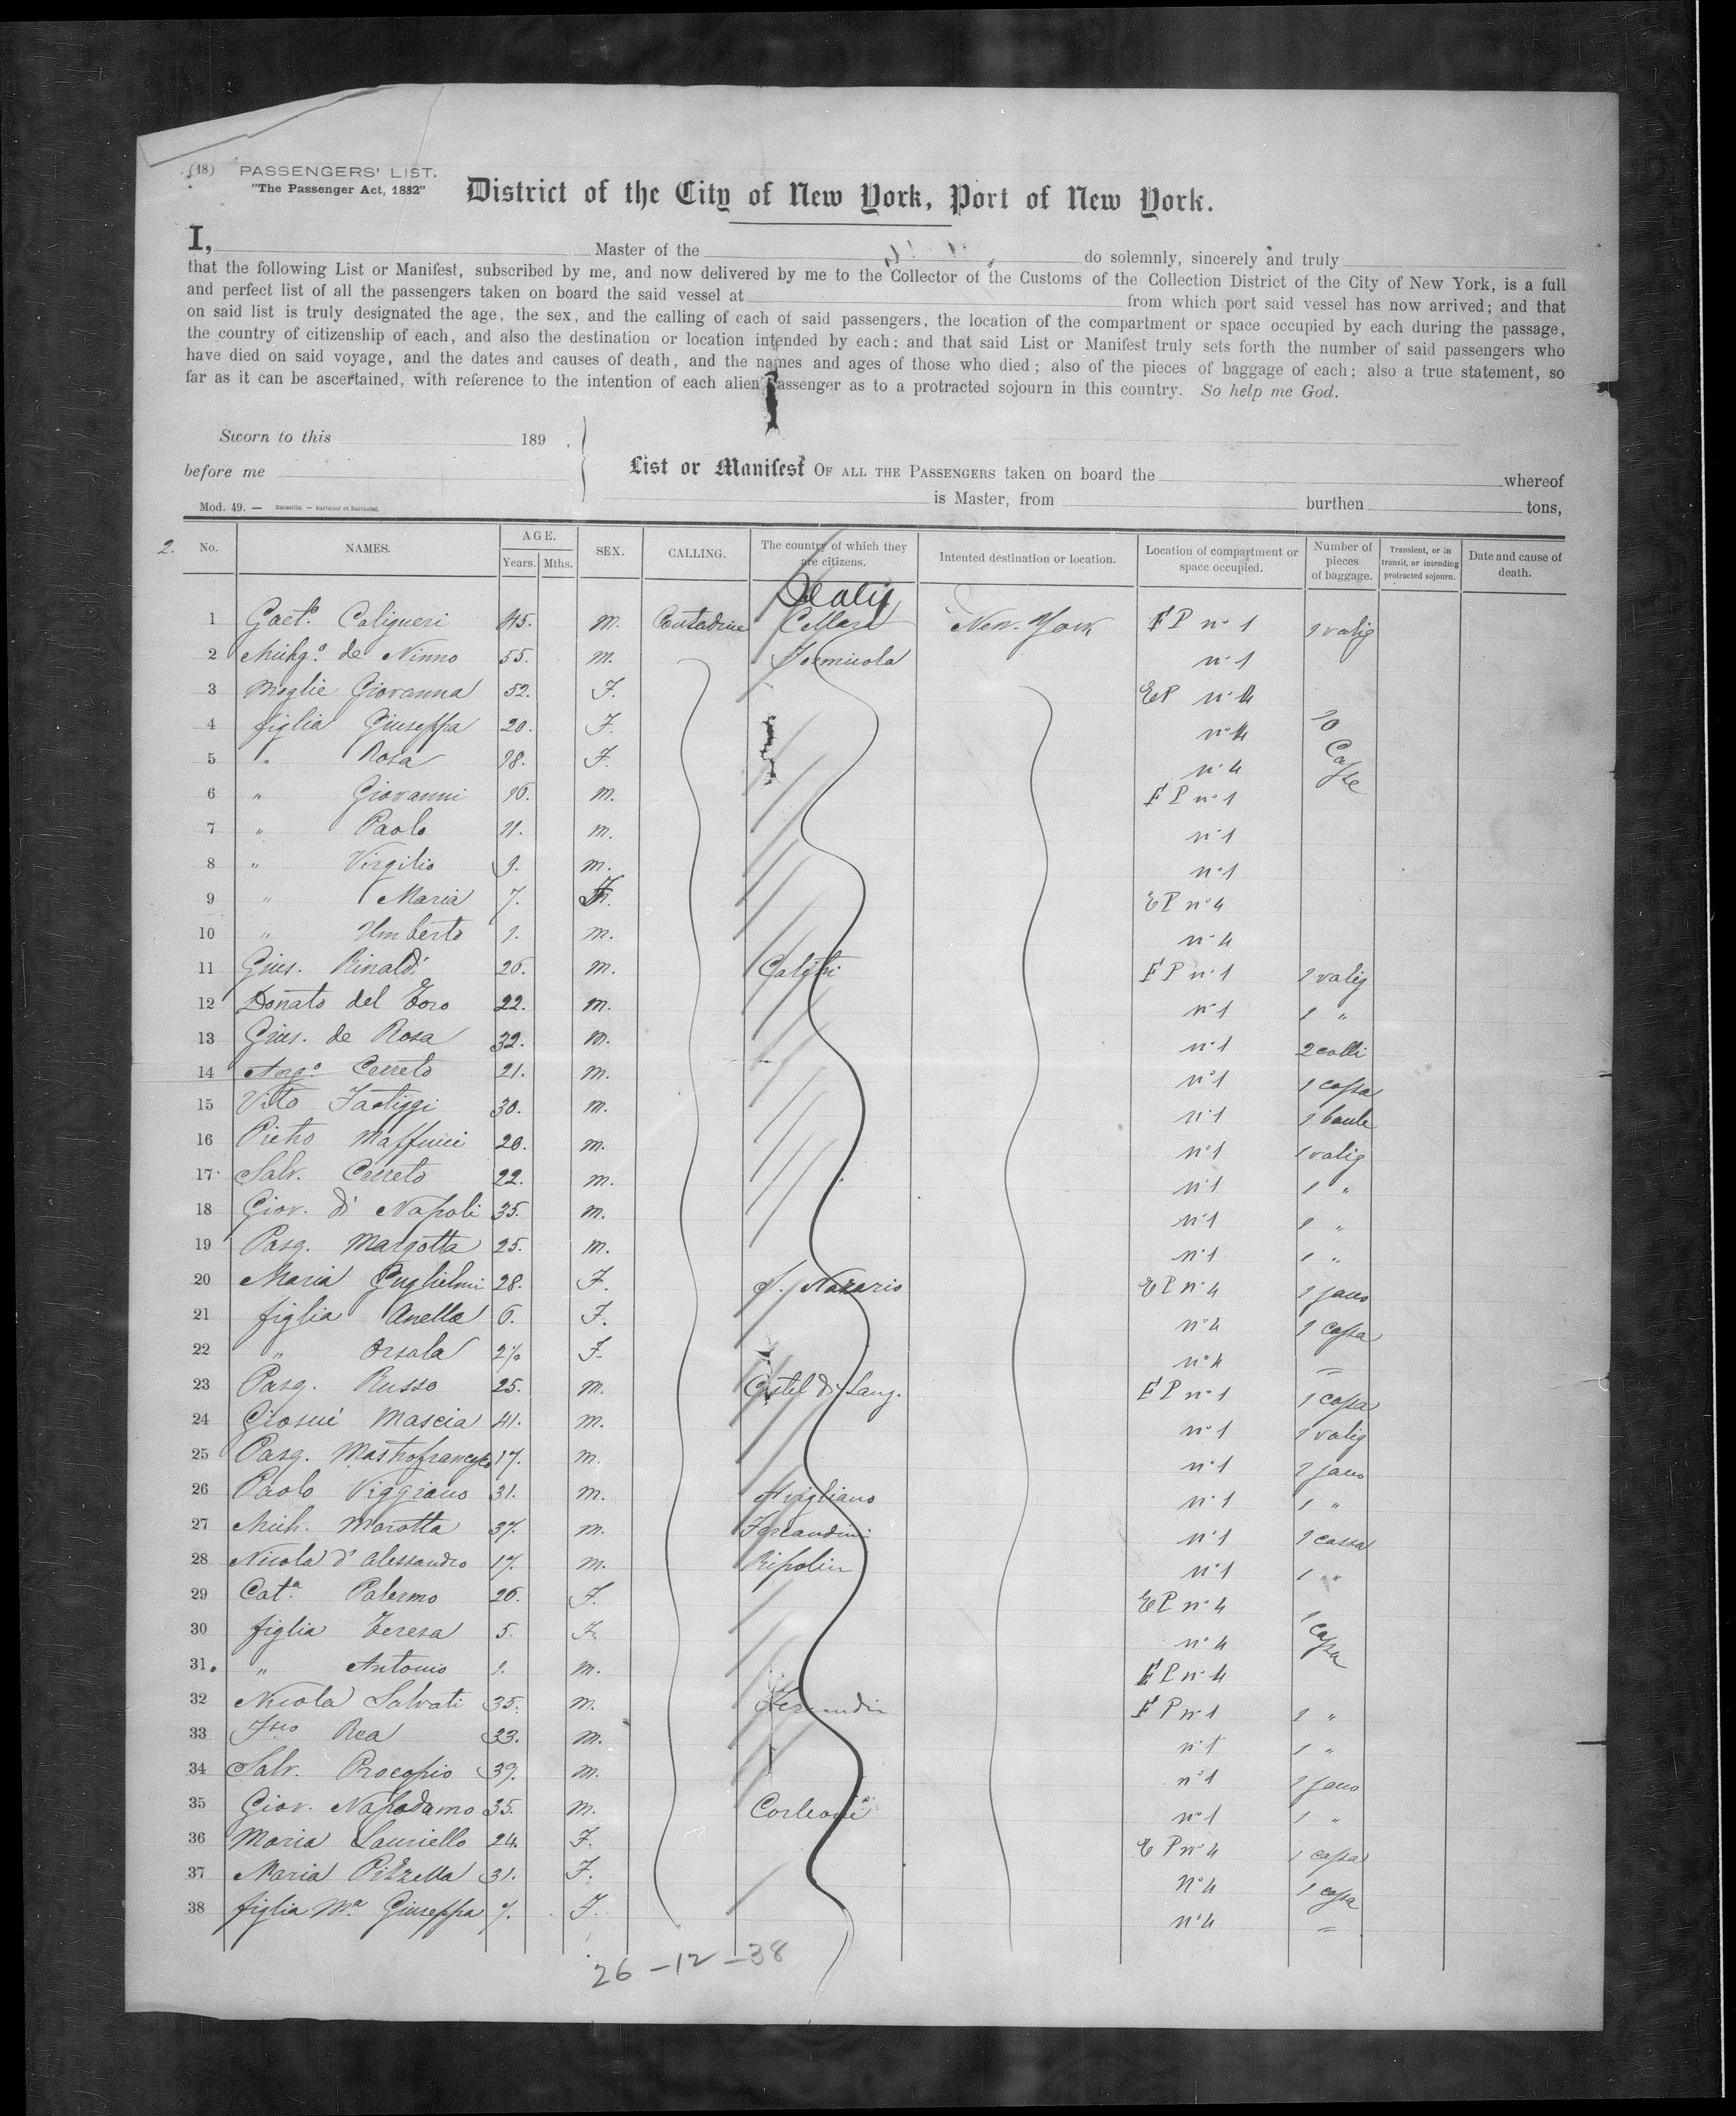 (18) PASSENGERS' LIST.
"The Passenger Act, 1882"
District of the City of New York, Port of New York.
I, Master of the do solemnly, sincerely and truly
that the following List or Manifest, subscribed by me, and now delivered by me to the Collector of the Customs of the Collection District of the City of New York, is a full
and perfect list of all the passengers taken on board the said vessel at from which port said vessel has now arrived; and that
on said list is truly designated the age, the sex, and the calling of each of said passengers, the location of the compartment or space occupied by each during the passage,
the country of citizenship of each, and also the destination or location intended by each: and that said List or Manifest truly sets forth the number of said passengers who
have died on said voyage, and the dates and causes of death, and the names and ages of those who died; also of the pieces of baggage of each; also a true statement, so
far as it can be ascertained, with reference to the intention of each alien Passenger as to a protracted sojourn in this country. So help me God.
Sworn to this 189 ,
before me
List or Manifest OF ALL THE PASSENGERS taken on board the whereof
is Master, from burthen tons,
Mod. 49. — Marseille. — Barlatier et Barthelet.
2. No. NAMES. AGE. Years. Mths. SEX. CALLING. The country of which they are citizens. Intented destination or location. Location of compartment or space occupied. Number of pieces of baggage. Transient, or in transit, or intending protracted sojourn. Date and cause of death.
Italy
1 Gaet.º Caligueri 45. m. Contadine Cellara New-York F P nº 1 1 valig
2 Michg.º de Ninno 55. m. Formicola nº 1
3 Moglie Giovanna 52. F. EP nº 4
4 figlia Giuseppa 20. F. nº 4 10 Casse
5 " Rosa 18. F. nº 4
6 " Giovanni 16. m. F P nº 1
7 " Paolo 11. m. nº 1
8 " Virgilio 9. m. nº 1
9 " Maria 7. F. E P nº 4
10 " Umberto 1. m. nº 4
11 Gius. Rinaldi 26. m. Calitri F P nº 1 1 valig
12 Donato del Toro 22. m. nº 1 1 "
13 Gius. de Rosa 32. m. nº 1 2 colli
14 Ang.º Cerreto 21. m. nº 1 1 cassa
15 Vito 30. m. nº 1 1 baule
16 Pietro Maffucci 20. m. nº 1 1 valig
17 Salv. Cerreto 22. m. nº 1 1 "
18 Giov. di Napoli 35. m. nº 1 1 "
19 Pasq. Margotta 25. m. nº 1 1 "
20 Maria Guglielmi 28. F. S. Nazario E P nº 4 1 saco
21 figlia Anella 6. F. nº 4 1 cassa
22 " Orsola F. nº 4 =
23 Pasq. Russo 25. m. Castel di Sang. F P nº 1 1 cassa
24 Giosué Mascia 41. m. nº 1 1 valig
25 Pasq. Mastrofrancesco 17. m. nº 1 saco
26 Paolo Viggiano 31. m. Avigliano nº 1 1 "
27 Mich. Marotta 37. m. nº 1 1 cassa
28 Nicola d' Alessandro 17. m. nº 1 1 "
29 Cat.ª Palermo 26. F. E P nº 4
30 figlia Teresa 5. F. nº 4 1 Cassa
31. " Antonio 1. m. E P nº 4
32 Nicola Salvati 35. m. F P nº 1 1 "
33 Fsco. Rea 33. m. nº 1 1 "
34 Salv. Procopio 39. m. nº 1 1 saco
35 Giov. Napodamo 35. m. Corleone nº 1 1 "
36 Maria Lauriello 24. F. E P nº 4 1 cassa
37 Maria Pizzella 31. F. Nº 4 1 cassa
38 figlia Mª Giuseppa 7. F. nº 4 =
26 - 12 - 38